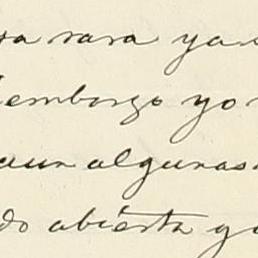 rara ya
embargo yo
aun algunas
do abierta y